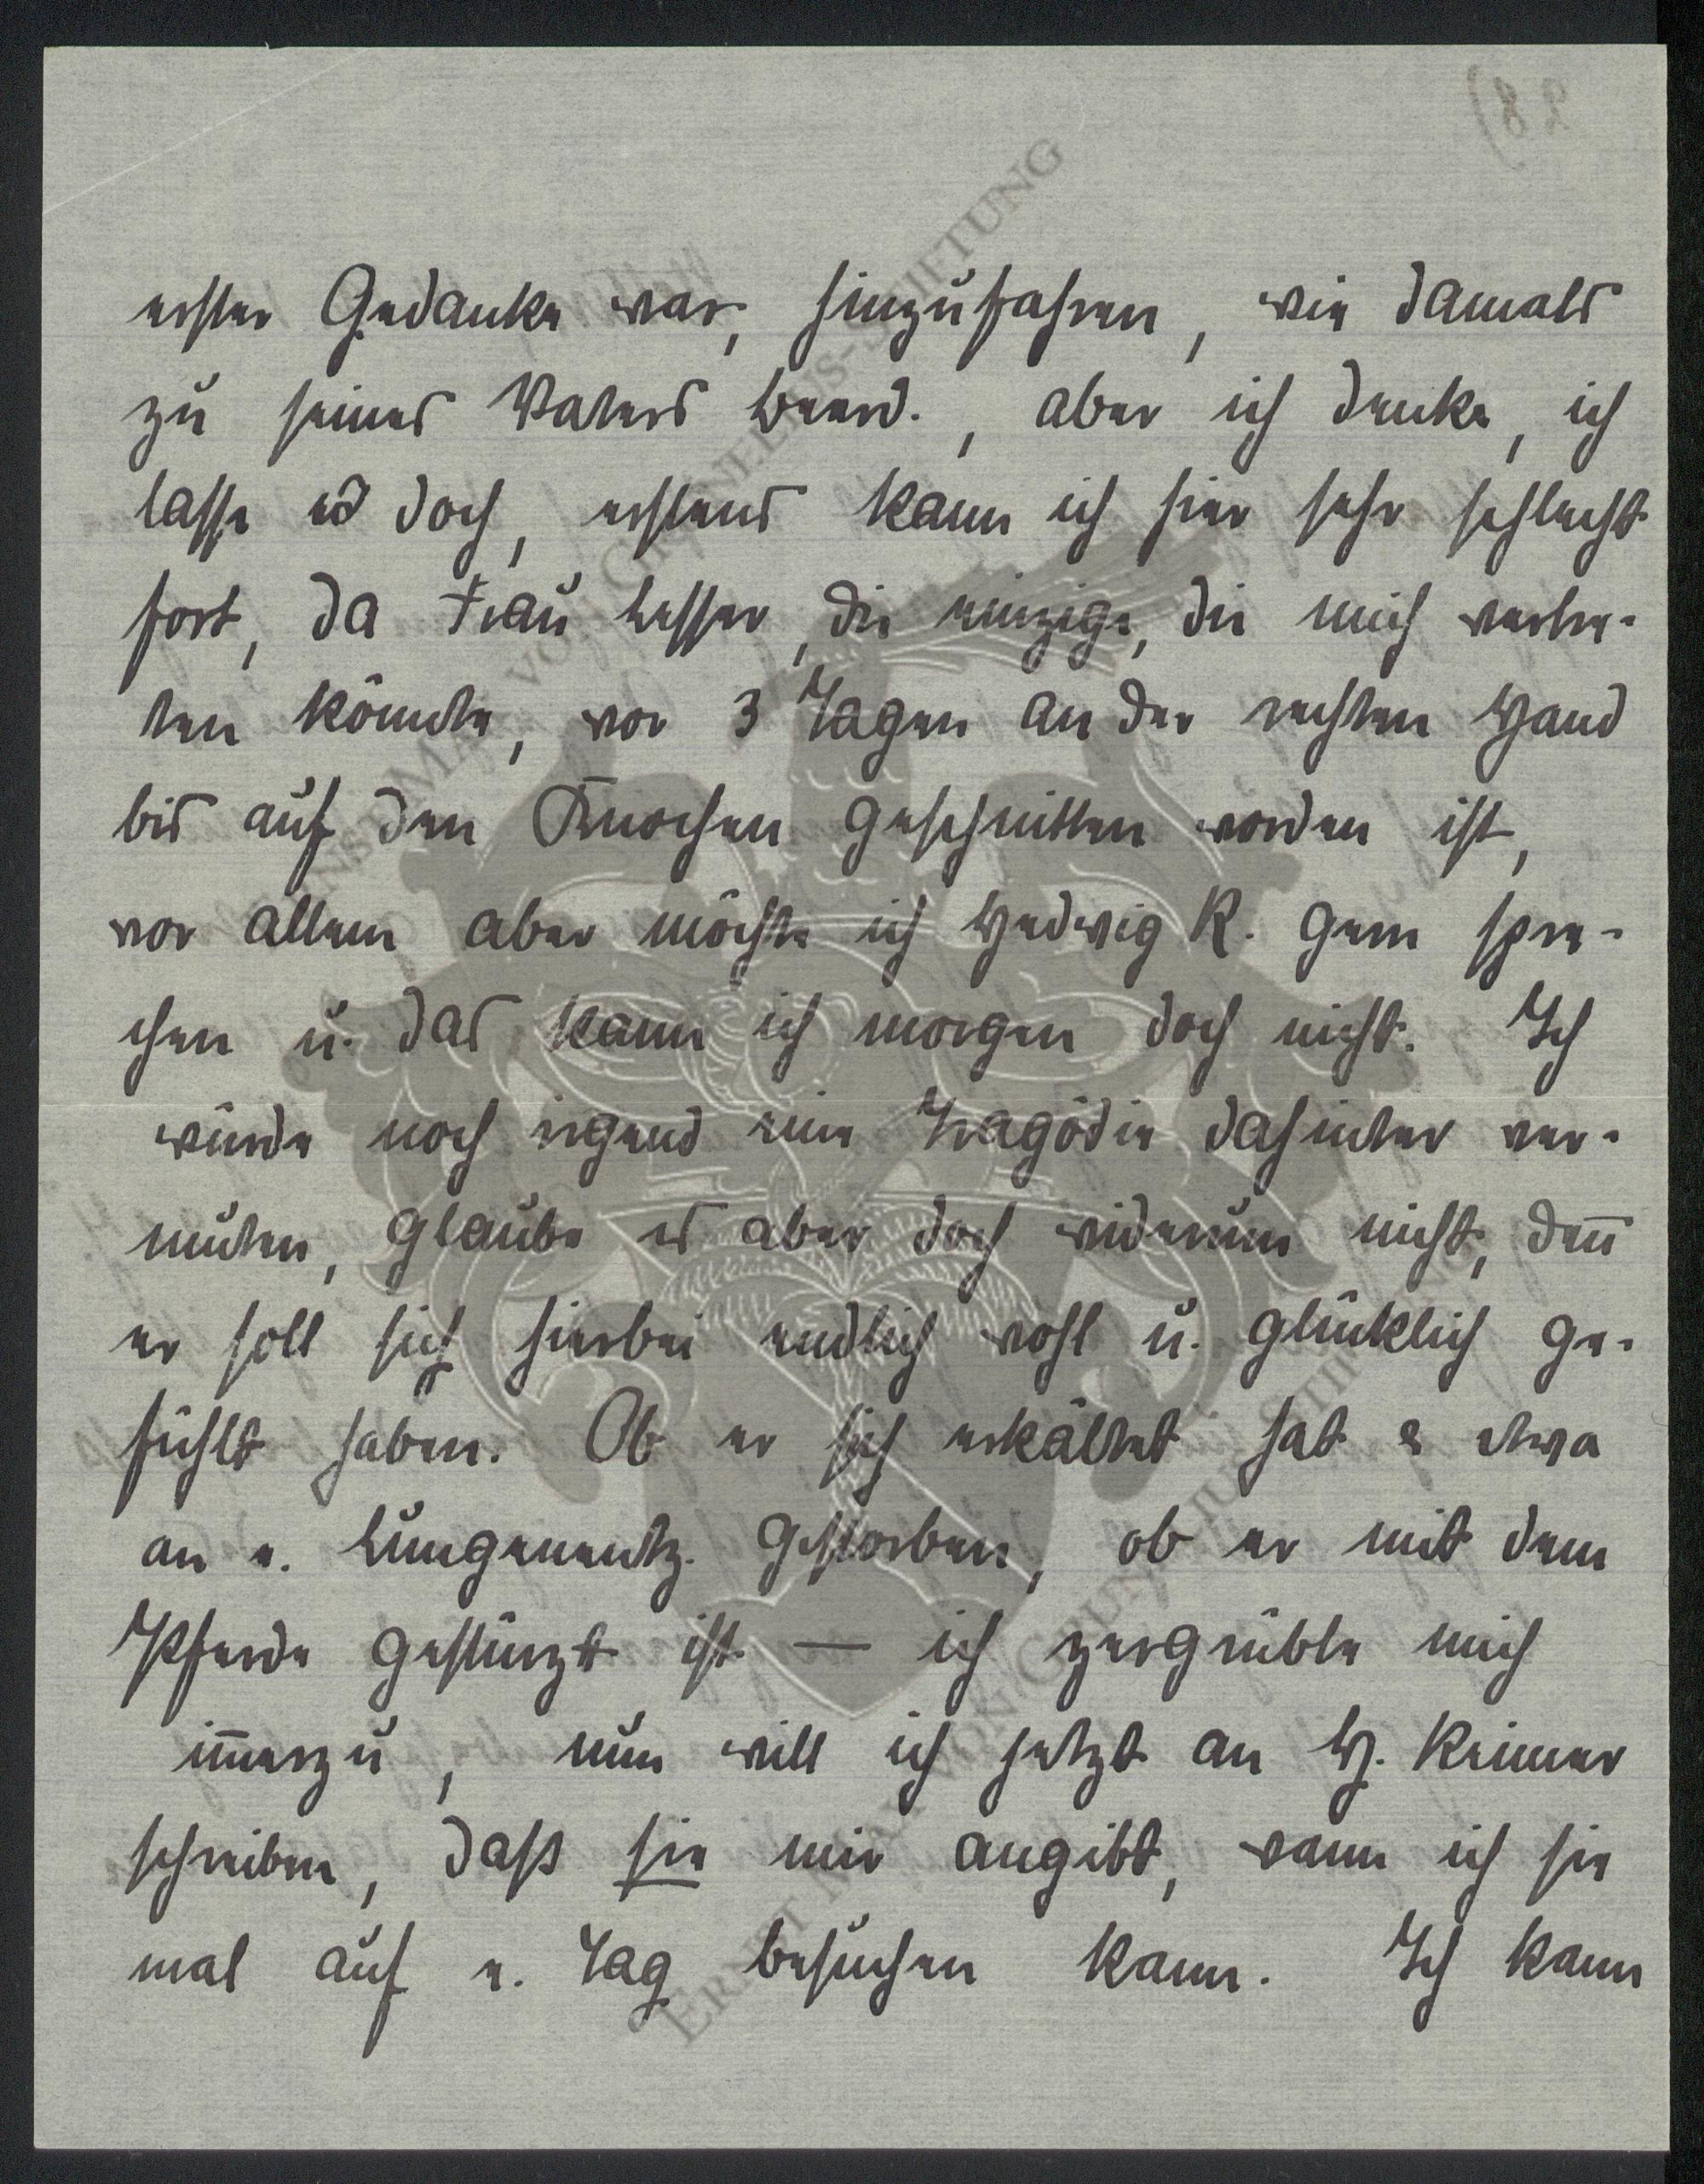 erster Gedanke war, hinzufahren, wie damals
zu seines Vaters Beerd., aber ich denke, ich
lasse es doch, erstens kann ich hier sehr schlecht
fort, da Frau Lesser, die einzige, die mich vertre-
ten könnte, vor 3 Tagen an der rechten Hand
bis auf den Knochen geschnitten worden ist,
vor allem aber möchte ich Hedwig R. gern spre-
chen u. das kann ich morgen doch nicht. Ich
würde noch irgend eine Tragödie dahinter ver-
muten, glaube es aber doch widerum nicht, den̄
er soll sich hierbei endlich wohl u. glücklich ge-
fühlt haben. Ob er sich erkältet hat & etwa
an e. Lungenentz. gestorben, ob er mit dem
Pferde gestürzt ist — ich zergrüble mich
im̄erzu, nun will ich jetzt an H. Reimer
schreiben, daß sie mir angibt, wann ich sie
mal auf e. Tag besuchen kann. Ich kann
ERNST MAX VON GRUNELIUS-STIFTUNG
ERNST MAX VON GRUNELIUS-STIFTUNG